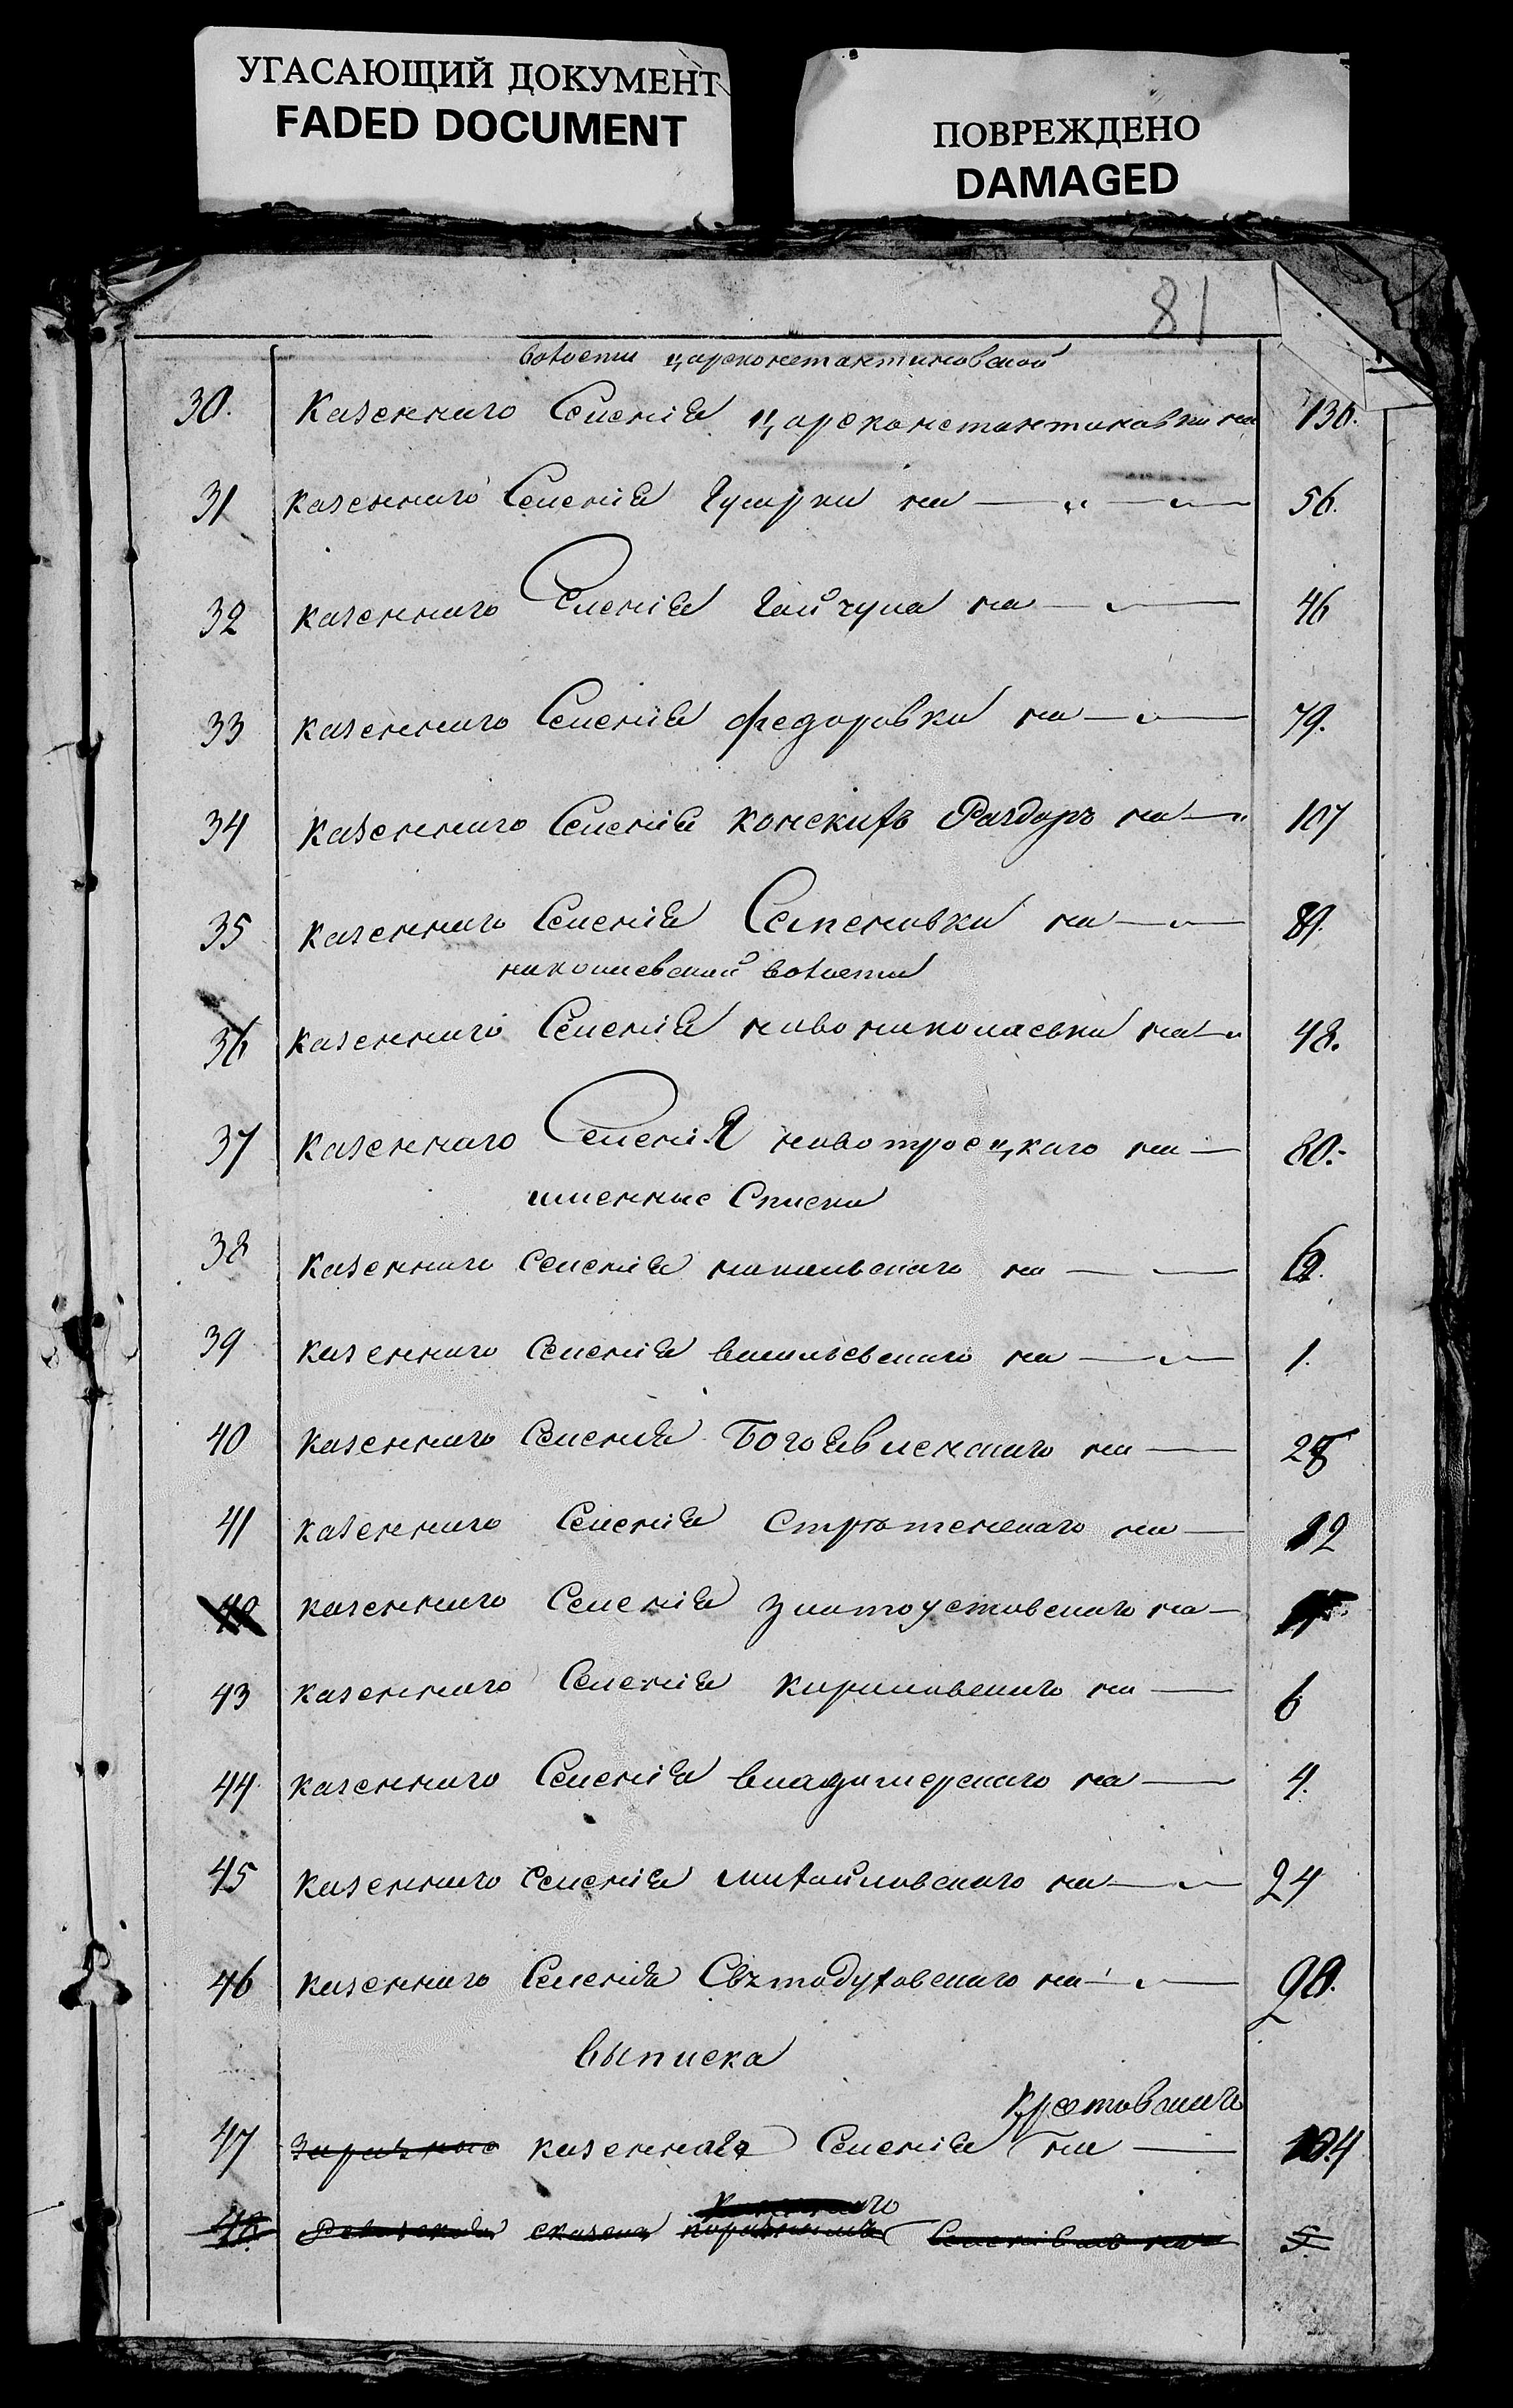 УГАСАЮЩИЙ ДОКУМЕНТ
FADED DOCUMENT
ПОВРЕЖДЕНО
DAMAGED
81
волости царсконстантиновской
30. Казеннаго Селенія царсконстантиновки на 130.
31 казеннаго Селенія Гусарки на 56.
32 казеннаго Селенія Гайчула на 46
33 казеннаго Селенія федоровки на 79.
34 казеннаго Селенія конскихъ Раздоръ на 107
35 казеннаго Селенія Семеновки на 89.
николаевской волости
36 казеннаго Селенія новониколаевки на 48.
37 казеннаго Селенія новотроецкаго на 80.
именные Списки
38 казеннаго селенія никольскаго на
39 казеннаго Селенія васильевскаго на 1.
40 казеннаго Селенія Богоявленскаго на
41 казеннаго Селенія Стрѣтенскаго на 12
казеннаго Селенія златоустовскаго на
43 казеннаго Селенія кириловскаго на 6
44. казеннаго Селенія владимерскаго на 4.
45 казеннаго селенія михайловскаго на 24
46 казеннаго Селенія Свѣтодуховскаго на 20.
выписка
47 казеннаго Селенія на
48. Ревизская